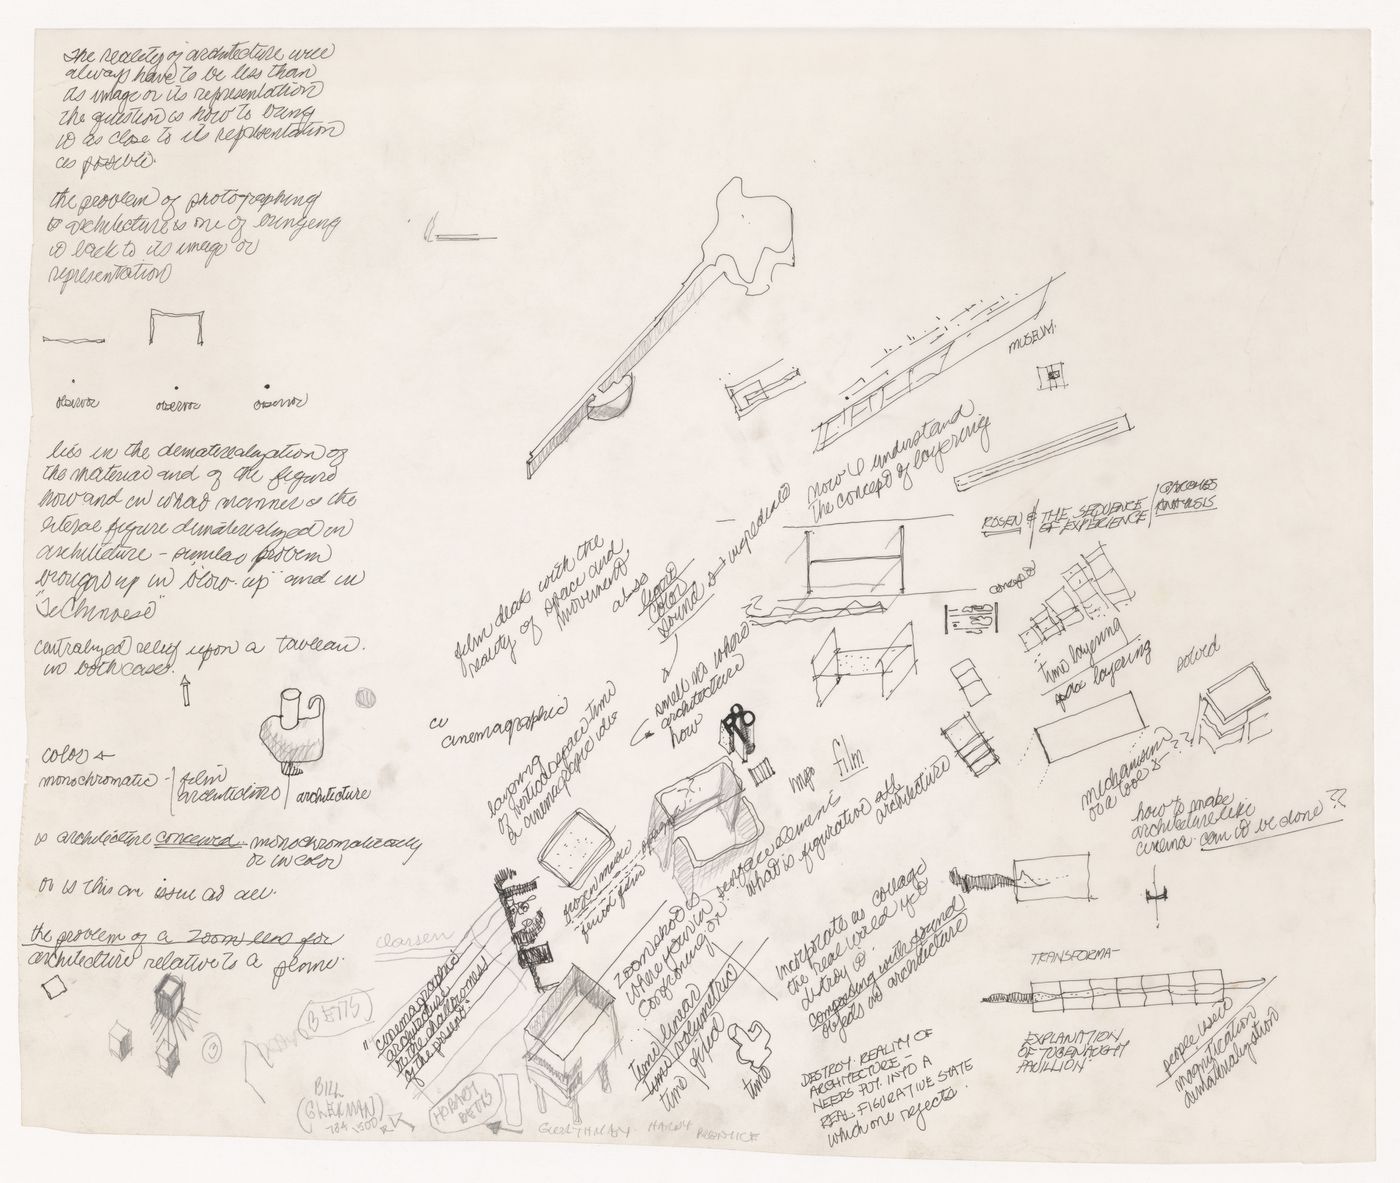 The reality of architecture will
always have to be less than
as image or its representation
the question is how to bring
it as close to its representation
as possible.
the problem of photographing
architecture is one of bringing
it back to its image or
representation
observor
observor
observor
lies in the dematerialization of
the material and of the figure
how and in what manner is the
literal figure dematerialized in
architecture - similar problem
brought up in "blow-up" and in
"La Chinoise"
centralized relief upon a tableau.
in both cases.
color &
monochromatic -
film
architecture
architecture
is architecture conceived monochromatically
or in color
or is this an issue at all.
the problem of a zoom lens for
architecture relative to a plane.
MUSEUM.
now I understand
the concept of layering
ROSEN & THE SEQUENCE
OF EXPERIENCE
ANALYSIS
concepts
time layering
space layering
solid
film deals with the
reality of space and
movement,
also
color
sound
is ingredient
smell no where
architecture
how
cinemagraphic
layering
of period space time
a cinemagraphic idea
frozen music
film
what is figurative
architecture
mechanism
as a tool
??
how to make
architecture like
cinema. can it be done??
zoom shots
where you via
confronting or
time linear
time volumetric
time
time
incorporate as collage
the real world yet
destroy it.
composing with sound
objects as architecture
DESTROY REALITY OF
ARCHITECTURE -
NEEDS PUT INTO A
REAL FIGURATIVE STATE
which one rejects.
TRANSFORMA-
EXPLANATION
OF TUGENDHAGHT
PAVILLION
people used
magnification
dematerialization
clarsen
"cinemagraphic
architecture
is the challenges
of the present"
BETTS
3
BILL
HOBART
BETTS
HARDY